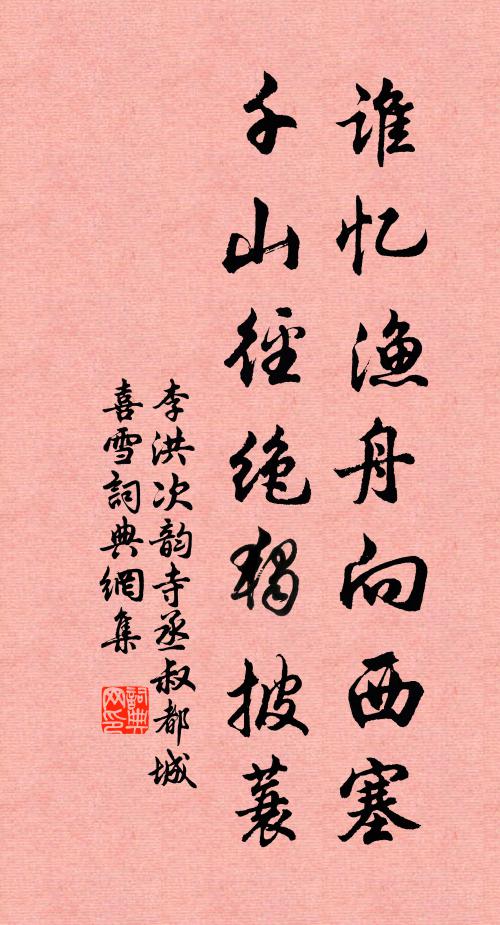 谁忆渔舟向西塞
千山径绝独披蓑
李洪次韵寺丞叔都城
喜雪詞典網集
詞典网印